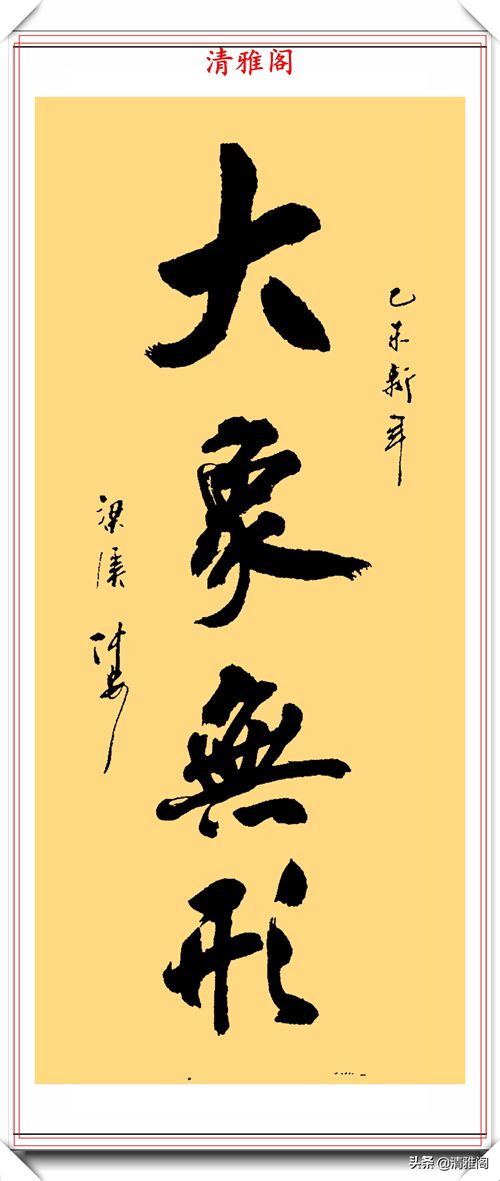 清雅阁
大象無形
己未新年
梁溪
头条 @清雅阁